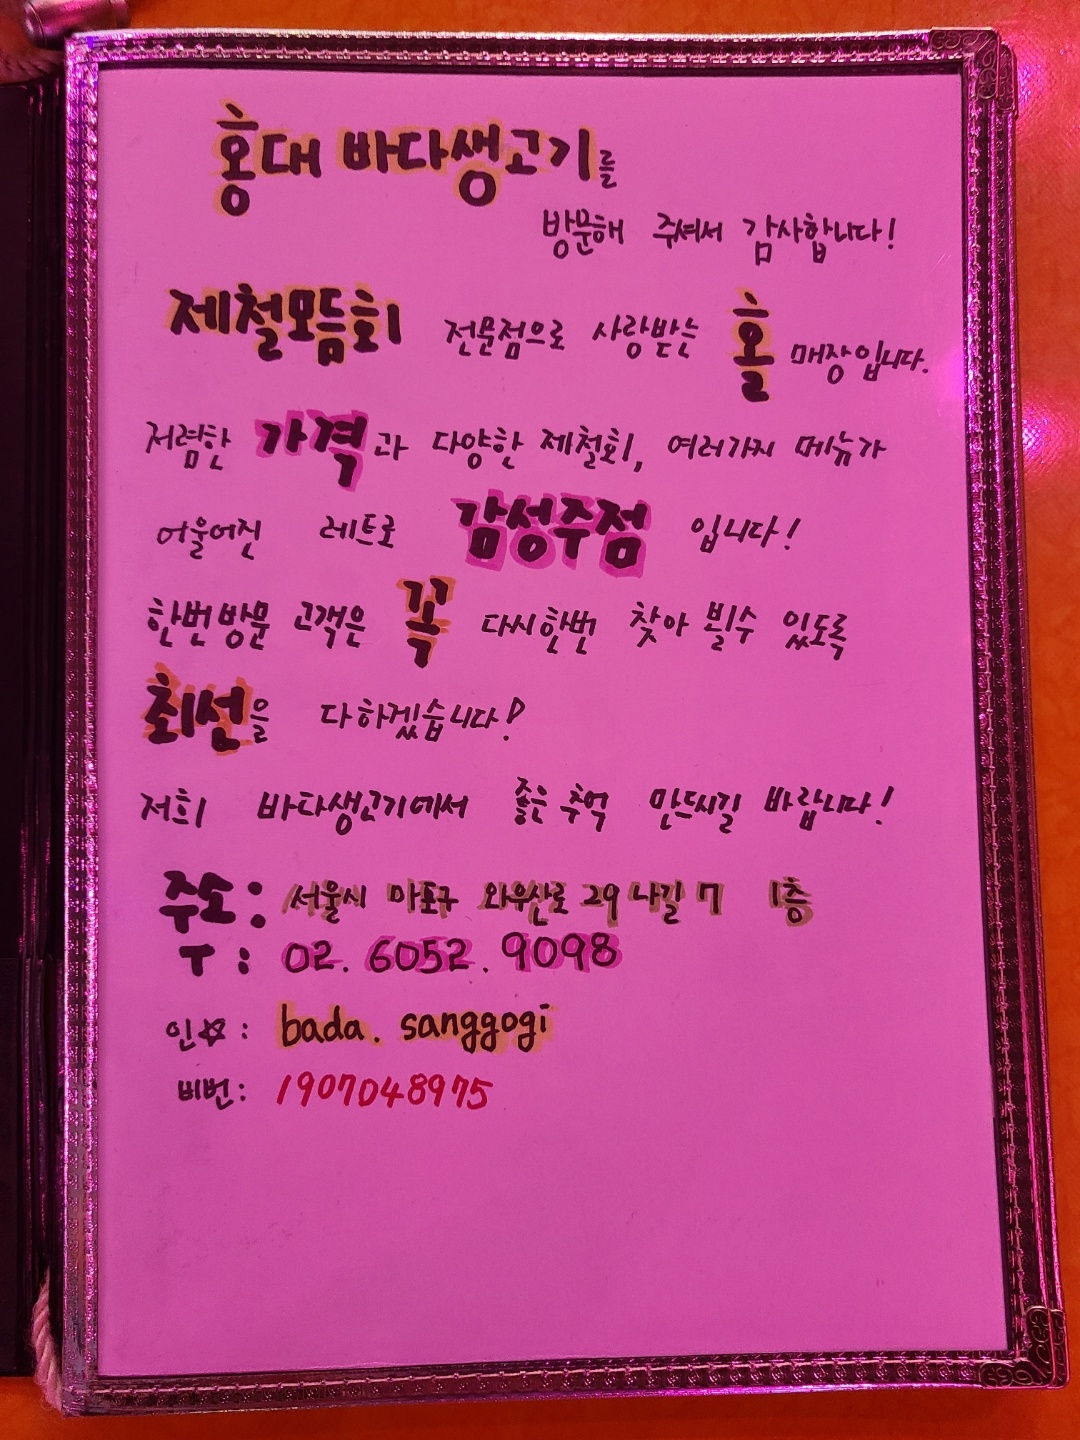 홍대 바다생고기를
방문해 주셔서 감사합니다!
제철모듬회 전문점으로 사랑받는 홀 매장입니다.
저렴한 가격과 다양한 제철회, 여러가지 메뉴가
어울어진 레트로 감성주점 입니다!
한번방문 고객은 꼭 다시한번 찾아 뵐수 있도록
최선을 다하겠습니다!
저희 바다생고기에서 좋은 추억 만드시길 바랍니다!
주소: 서울시 마포구 와우산로 29 나길 7 1층
T: 02. 6052. 9098
인☆: bada. sanggogi
비번: 1907048975